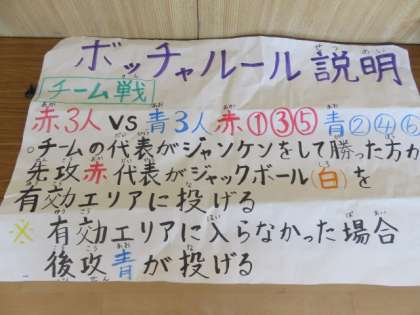 ボッチャルール説明
チーム戦
赤3人 VS 青3人 赤①③⑤ 青②④⑥
○チームの代表がジャンケンをして勝った方が
先攻赤代表がジャックボール(白)を
有効エリアに投げる
※有効エリアに入らなかった場合
後攻青が投げる